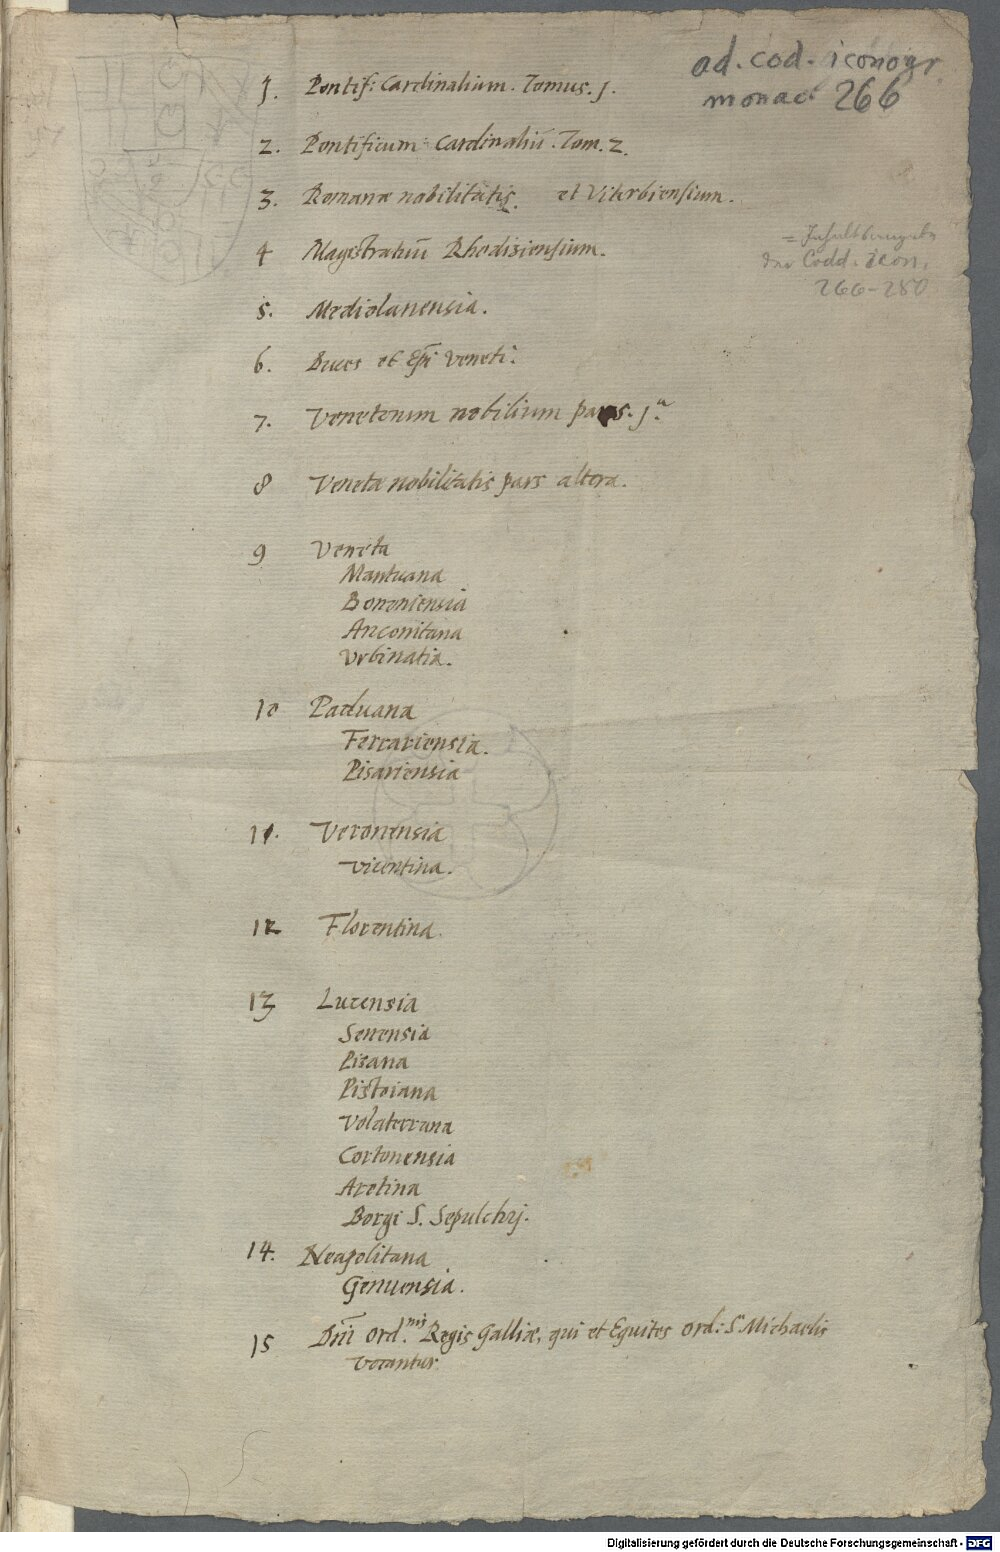 ad. cod. iconogr.
monac. 266
= Inhaltsangabe
der Codd. icon.
266-280
1. Pontif: Cardinalium. Tomus. j.
2. Pontificum Cardinaliū. Tom. 2.
3. Romanæ nobilitatis. et Viterbiensium.
4 Magistratuū Rhodisiensium.
5. Mediolanensia.
6. Duces et Epī Veneti.
7. Venetorum nobilium pars. jª.
8 Venetæ nobilitatis pars altera.
9 Veneta
Mantuana
Bononiensia
Anconitana
Vrbinatia.
10 Paduana
Ferrariensia.
Pisariensia
11. Veronensia
Vicentina.
12 Florentina.
13 Lucensia
Senensia
Pisana
Pistoiana
Volaterrana
Cortonensia
Aretina
Borgi S. Sepulchrj.
14. Neapolitana
Genuensia.
15 Dnī ord.nis Regis Galliæ, qui et Equites ord: S. Michaelis
vocantur
Digitalisierung gefördert durch die Deutsche Forschungsgemeinschaft - DFG